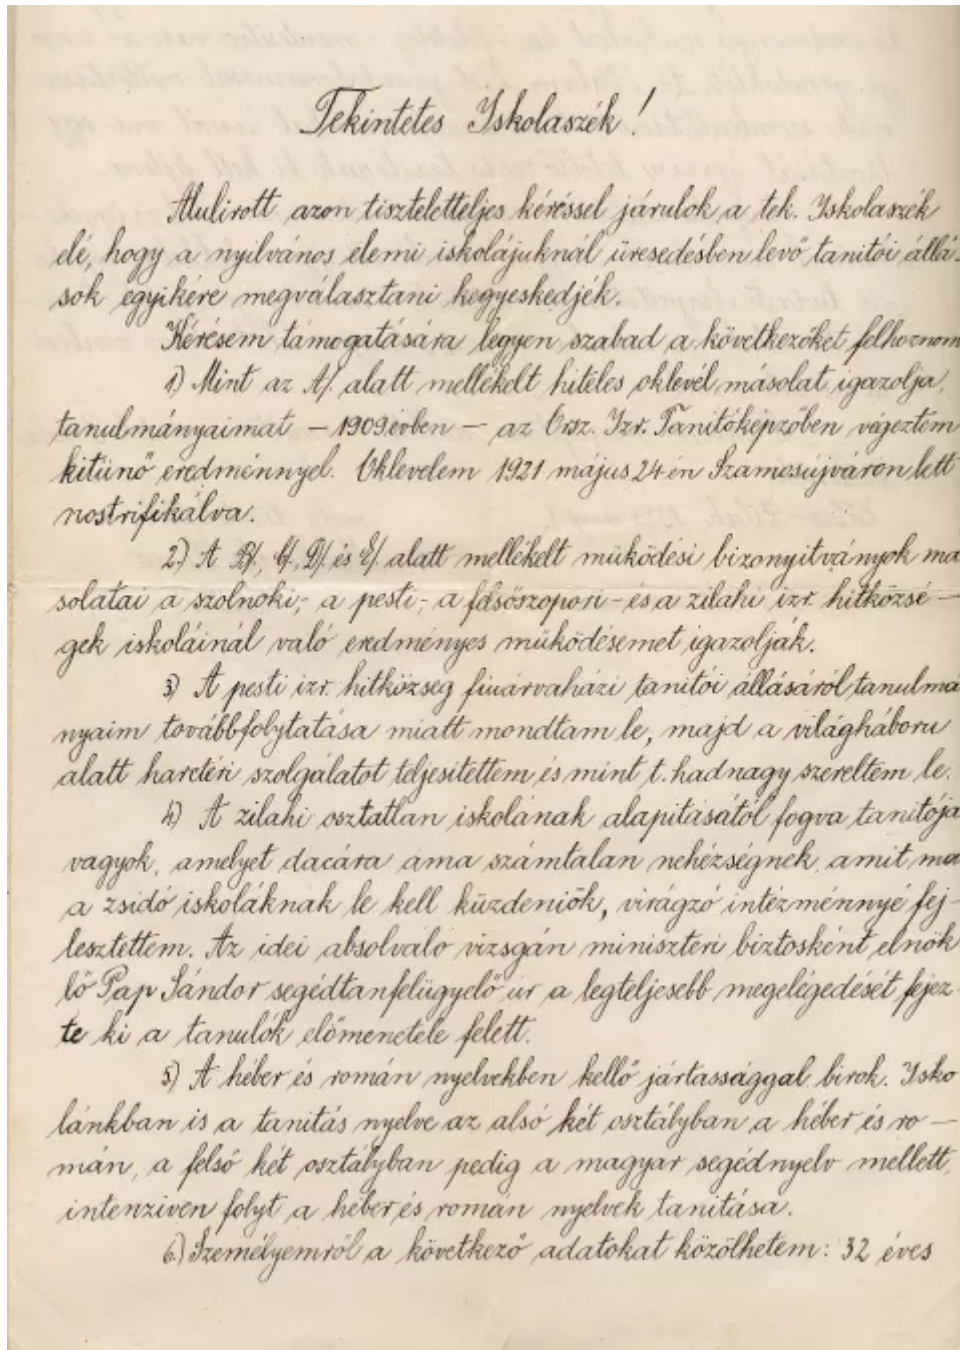 Tekintetes Iskolaszék!
Alulirott azon tiszteletteljes kéréssel járulok a tek. Iskolaszék
elé, hogy a nyilvános elemi iskolájuknál üresedésben levő tanitói állá-
sok egyikére megválasztani kegyeskedjék.
Kérésem támogatására legyen szabad a következőket felhoznom
1) Mint az A/. alatt mellékelt hiteles oklevél másolat igazolja,
tanulmányaimat — 1909 évben — az Orsz. Izr. Tanitóképzőben végeztem
kitünő eredménnyel. Oklevelem 1921 május 24-én Szamosújváron lett
nostrifikálva.
2) A B/., C/., D/. és E/. alatt mellékelt müködési bizonyitványok má
solatai a szolnoki,- a pesti,- a felsőszopori- és a zilahi izr. hitközsé —
gek iskoláinál való eredményes müködésemet igazolják.
3) A pesti izr. hitközség fiuárvaházi tanitói állásáról tanulmá
nyaim továbbfolytatása miatt mondtam le, majd a világháboru
alatt harctéri szolgálatot teljesitettem és mint t. hadnagy szereltem le.
4) A zilahi osztatlan iskolának alapitásától fogva tanitója
vagyok, amelyet dacára ama számtalan nehézségnek, amit ma
a zsidó iskoláknak le kell küzdeniök, virágzó intézménnyé fej-
lesztettem. Az idei absolváló vizsgán miniszteri biztosként elnök
lő Pap Sándor segédtanfelügyelő úr a legteljesebb megelégedését fejez-
te ki a tanulók előmenetele felett.
5) A héber és román nyelvekben kellő jártassággal birok. Isko
lánkban is a tanitás nyelve az alsó két osztályban a héber és ro —
mán, a felső két osztályban pedig a magyar segédnyelv mellett,
intenziven folyt a héber és román nyelvek tanitása.
6.) Személyemről a következő adatokat közölhetem: 32 éves